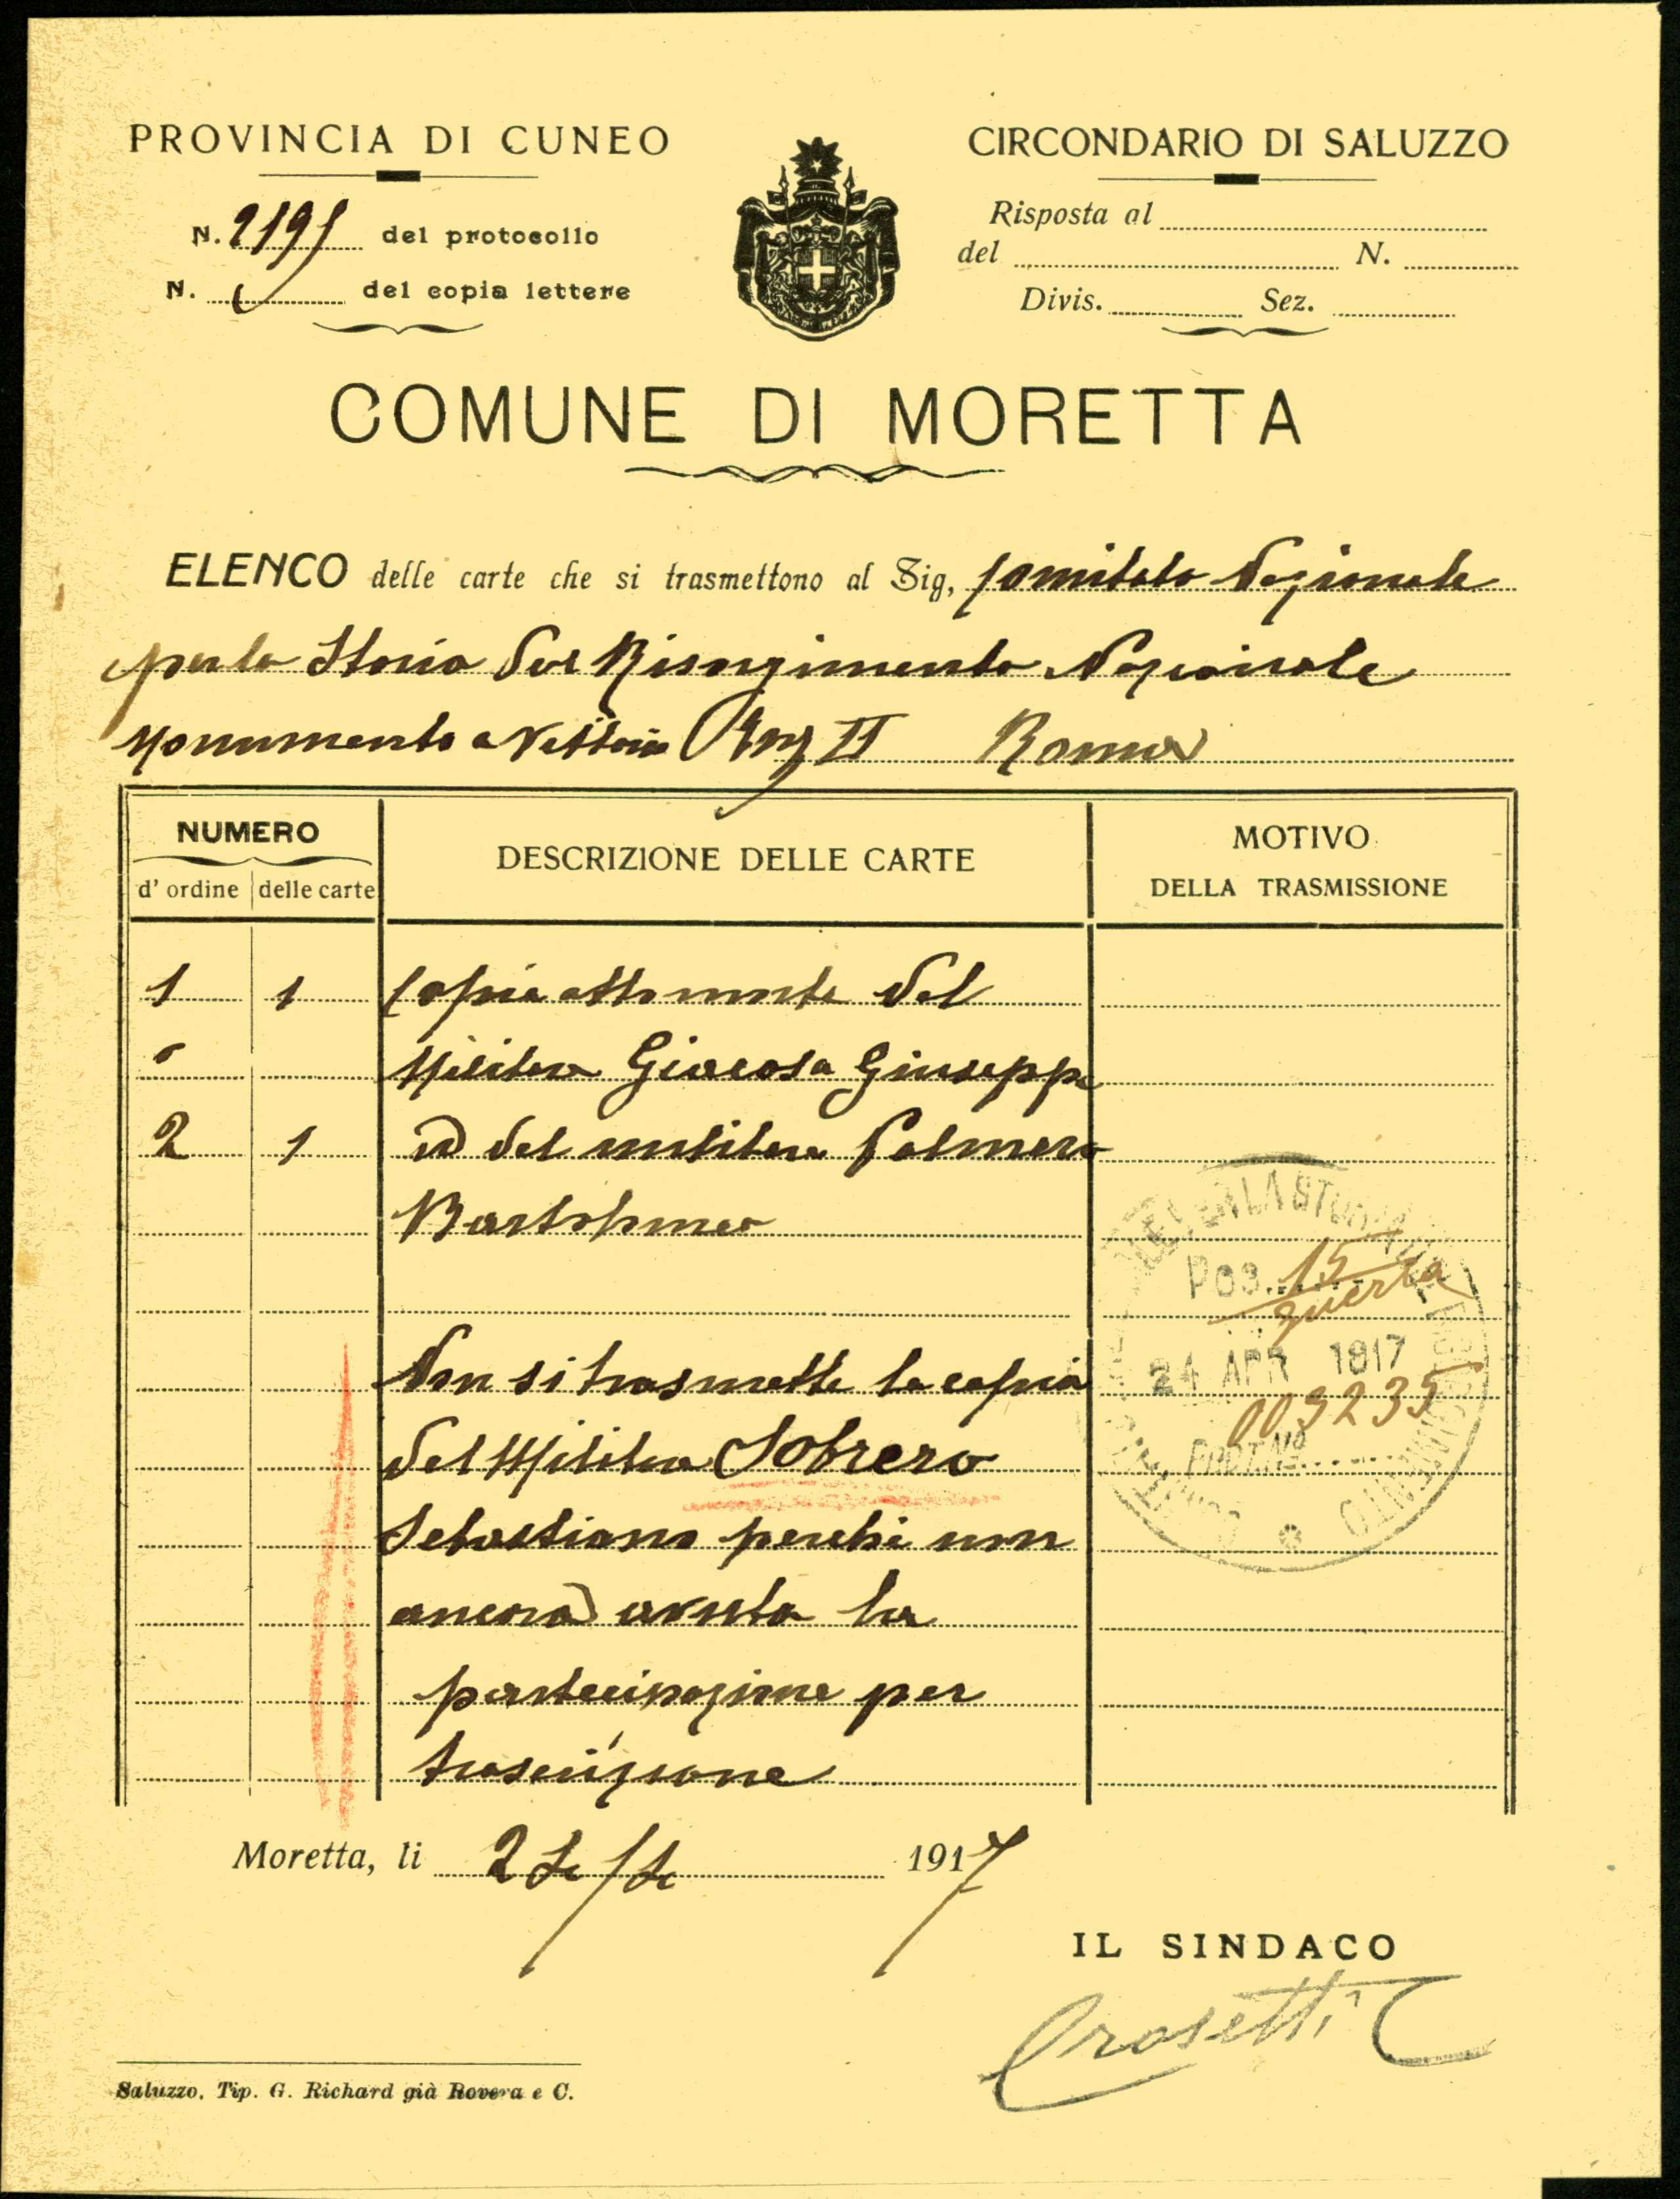 PROVINCIA DI CUNEO
CIRCONDARIO DI SALUZZO
N. 2195 del protocollo
N. del copia lettere
Risposta al
del N.
Divis. Sez.
COMUNE DI MORETTA
ELENCO delle carte che si trasmettono al Sig, Comitato Nazionale
per la Storia del Risorgimento Nazionale
Monumento a Vittorio II Roma
NUMERO
d' ordine delle carte
DESCRIZIONE DELLE CARTE
MOTIVO
DELLA TRASMISSIONE
1 1 Copia atto morte del
Militare Giacosa Giuseppe
2 1 id del militare Palmero
Bartolomeo
Non si trasmette la copia
del Militare Sobrero
Sebastiano perchè non
ancora avuta la
partecipazione per
trascrizione
POS. 15
guerra
24 APR 1917
009235
PROT. No
Moretta, li 24/4 1917
IL SINDACO
Crosetti
Saluzzo, Tip. G. Richard già Rovera e C.